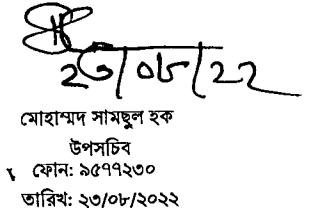 ২৩/০৮/২২
মোহাম্মদ সামছুল হক
উপসচিব
ফোন: ৯৫৭৭২৩০
তারিখ: ২৩/০৮/২০২২